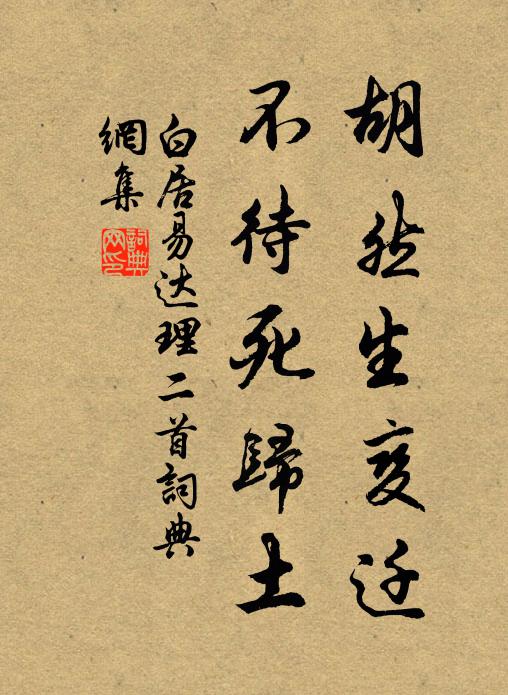 胡然生变迁
不待死歸土
白居易达理二首詞典
網集
詞典
网印